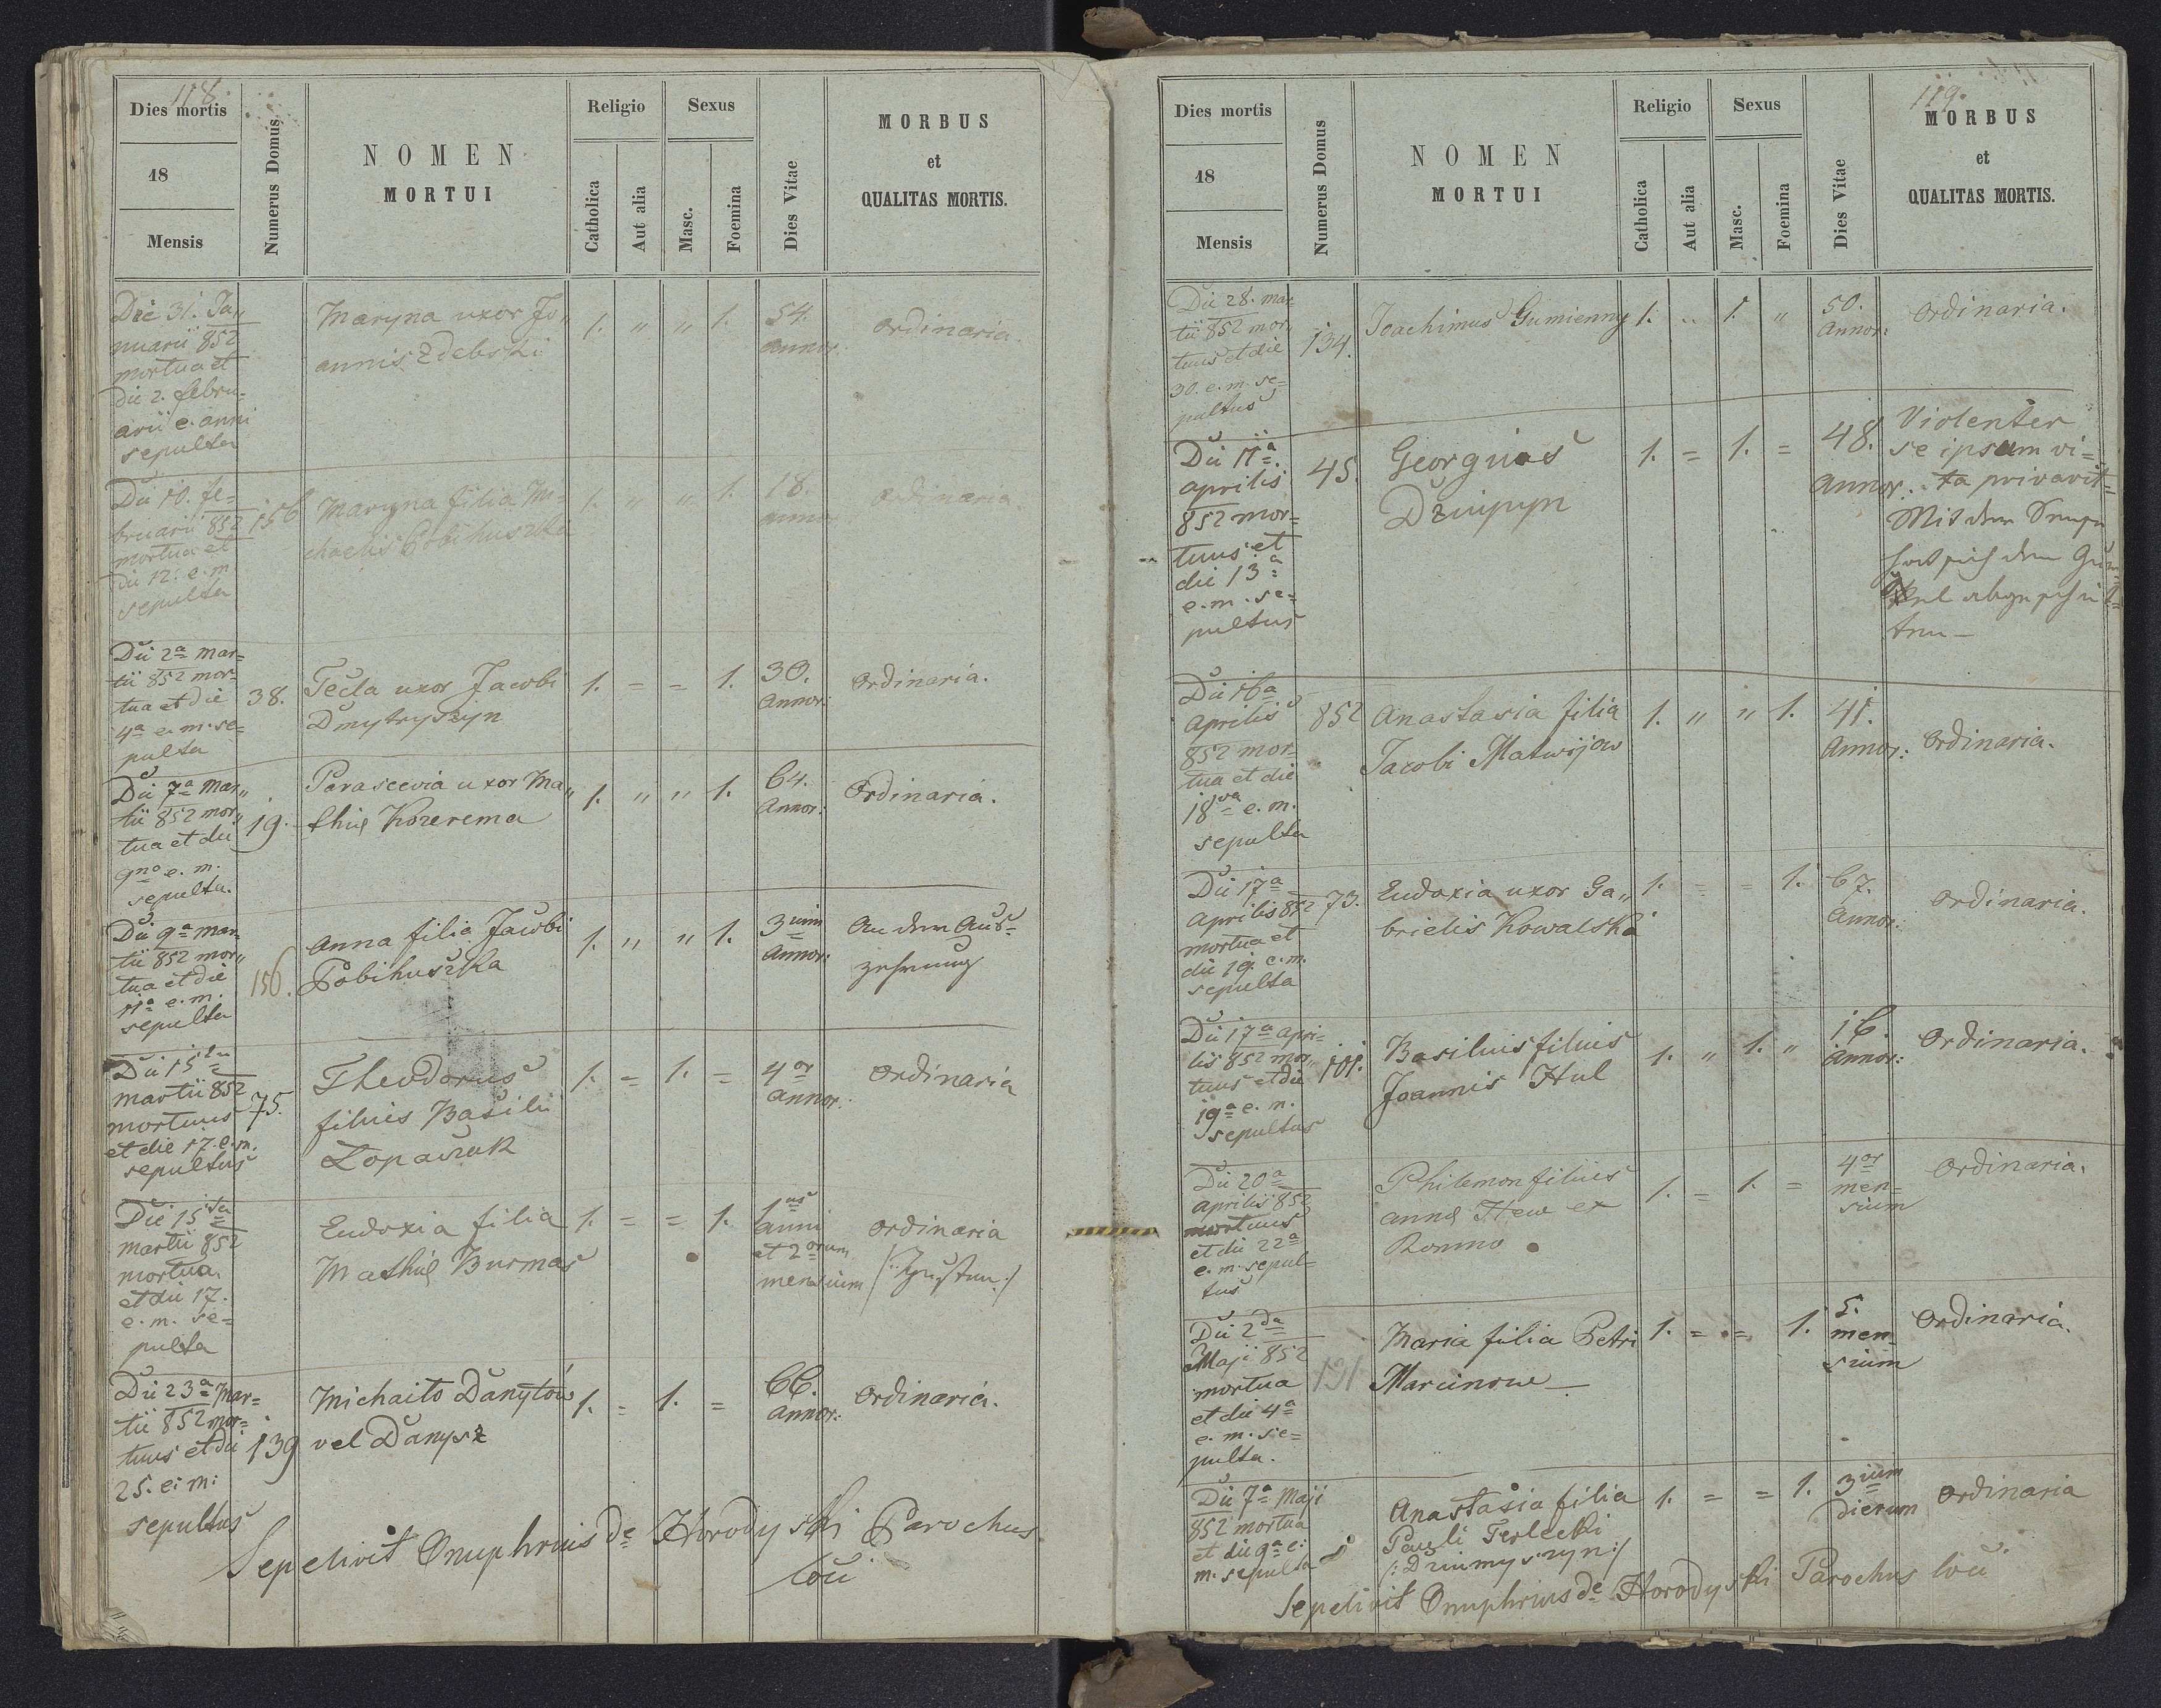 118.
Dies mortis
18
Mensis
Numerus Domus
NOMEN
MORTUI
Religio
Catholica
Aut alia
Sexus
Masc.
Foemina
Dies Vitae
MORBUS
et
QUALITAS MORTIS.
Die 31. Ja„
nuarii 852
mortua et
die 2. febru-
arii e. anni
sepulta
Maryna uxor Jo„
annis Zdebski
1. „ „ 1.
54.
annor.
ordinaria.
Die 10. fe=
bruarii 852
mortua et
die 12. e. m.
sepulta
156
Maryna filia Mi-
chaelis Pobihuszka
1. „ „ 1.
18.
annor.
ordinaria.
Die 2a mar=
tii 852 mor=
tua et die
4a e. m. se=
pulta
38.
Tecla uxor Jacobi
Dmytryszyn
1. = = 1.
30.
Annor:
Ordinaria.
Die 7a Mar„
tii 852 mor„
tua et die
9na e. m.
sepulta.
19.
Parascevia uxor Ma„
thiæ Korerema
1. „ „ 1.
64.
Annor:
Ordinaria.
Die 9a mar„
tii 852 mor„
tua et die
11a e. m.
sepulta
156.
Anna filia Jacobi
Pobihuszka
1. „ „ 1.
3ium
Annor:
An dem Aus=
zehrung
Die 15ta
martii 852
mortuus
et die 17. e. m.
sepultus
75.
Theodorus
filius Basilii
Lopaszuk
1. = 1. =
4or
annor.
Ordinaria
Die 15ta
martii 852
mortua.
et die 17.
e. m. se=
pulta
Eudoxia filia
Mathiæ Burmas
1. = = 1.
1us
anni
et 2orum
mensium
ordinaria
Die 23a Mar=
tii 852 mor=
tuus et die
25. e: m:
sepultus
139
Michaito Danytow
vel Danysz
1. = 1. =
66.
Annor:
Ordinaria.
Sepelivit Onuphrius de Horodyski Parochus
loci
119.
Dies mortis
18
Mensis
Numerus Domus
NOMEN
MORTUI
Religio
Catholica
Aut alia
Sexus
Masc.
Foemina
Dies Vitae
MORBUS
et
QUALITAS MORTIS.
Die 28. mar
tii 852 mor„
tuus et die
30. e. m. se=
pultus
134.
Joachimus Gumienny
1. „ 1. „
50.
Annor:
Ordinaria.
Die 11a
aprilis
852 mor=
tuus et
die 13a
e. m. se=
pultus
45.
Georgius
1. = 1. =
48.
Annor:
Violenter
se ipsum vi=
ta privavit=
Mit dem
hat sich den Gur=
gel abgeschnit=
ten —
Die 16a
Aprilis
852 mor
tua et die
18va e. m.
sepulta
852
Anastasia filia
Jacobi Matwijow
1. „ „ 1.
41.
Annor:
Ordinaria.
Die 17a
Aprilis 852
mortua et
die 19. e. m.
sepulta
73.
Eudoxia uxor Ga„
brielis Kowalska
1. = = 1.
67.
Annor:
Ordinaria.
Die 17a Apri-
lis 852 mor„
tuus et die
19a e. m.
sepultus
101.
Basilius filius
Joannis Hul
1. „ 1. „
16.
Annor:
Ordinaria.
Die 20a
Aprilis 852
mortuus
et die 22a
e. m. sepul=
tus
Philemon filius
annæ Hew ex
Romno
1. = 1. =
4or
men=
sium
Ordinaria.
Die 2da
Maji 852
mortua
et die 4a
e. m. se=
pulta.
131
Maria filia Petri
Marcinow —
1. = = 1.
5.
men
sium
Ordinaria.
Die 7a Maji
852 mortua
et die 9a e:
m. sepulta
Anastasia filia
Pauli Terlecki
1. = = 1.
3ium
Dierum
Ordinaria
Sepelivit Onuphrius de Horodyski Parochus loci